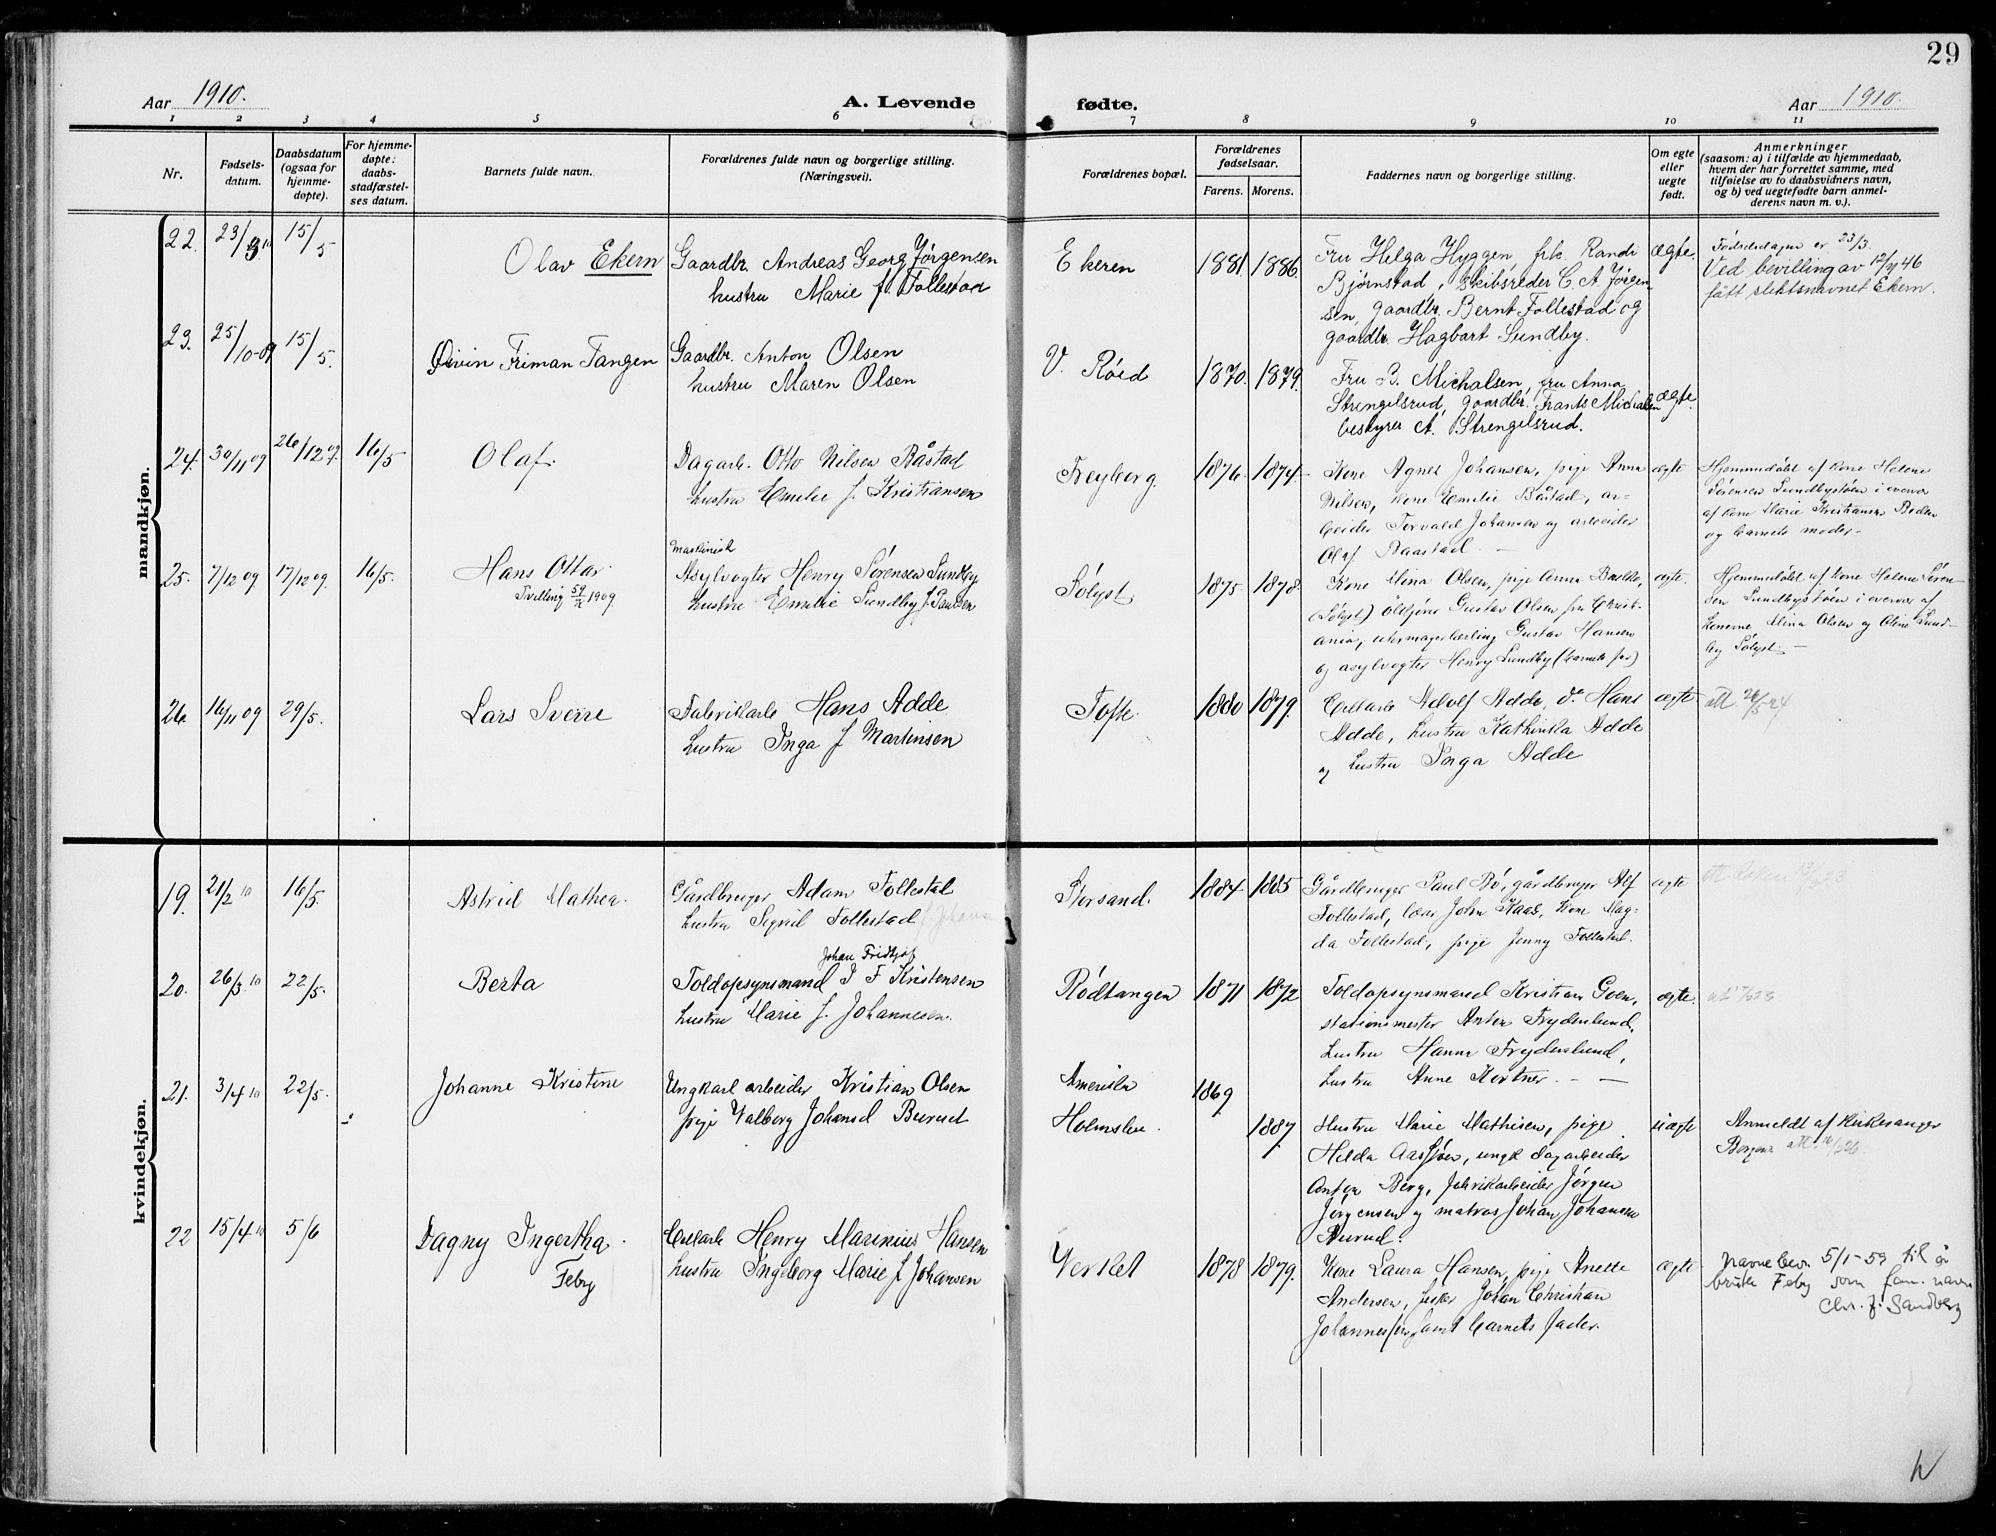 29
Aar 1910.
A. Levende fødte.
Aar 1910.
1 2 3 4 5 6 7 8 9 10 11
Nr.
Fødsels-
datum.
Daabsdatum
(ogsaa for
hjemme-
døpte).
For hjemme-
døpte:
daabs-
stadfæstel-
ses datum.
Barnets fulde navn.
Forældrenes fulde navn og borgerlige stilling.
(Næringsvei).
Forældrenes bopæl.
Forældrenes
fødselsaar.
Farens. Morens.
Faddernes navn og borgerlige stilling.
Om egte
eller
uegte
født.
Anmerkninger
(saasom: a) i tilfælde av hjemmedaab,
hvem der har forrettet samme, med
tilføielse av to daabsvidners navn,
og b) ved uegtefødte barn anmel-
derens navn m. v.).
mandkjøn.
22. 23/3 10 15/5
Olav Ekern
Gaardbr. Andreas Georg Jørgensen
hustru Marie f. Follestad
Ekeren
1881. 1886.
Fru Helga Hyggen, frk. Randi
Bjørnstad, Skibsreder C. A. Jørgen
sen, gaardbr. Bernt Follestad og
gaardbr. Hagbart Sundby.
ægte.
Fødselsdagen er 23/3.
Ved bevilling av 12/ 46
fått slektsnavnet Ekern.
23. 25/10-09 15/5.
Øivin Friman Tangen
Gaardbr. Anton Olsen
hustru Maren Olsen
V. Røed
1870. 1879.
Fru B. Michalsen, fru Anna
Strengelsrud, gaardbr. Frants Michalsen
bestyrer A. Strengelsrud.
ægte.
24. 30/11 09 26/12 09. 16/5
Olaf.
Dagarb. Otto Nilsen Båstad
hustru Emilie f. Kristiansen
Freyborg.
1876. 1874.
Kone Agnes Johansen, pige Anna
Nilsen, kone Emilie Båstad, ar-
beider Torvald Johansen og arbeider
Olaf Baastad. —
ægte
Hjemmedøbt af kone Helene
Sørensen Sundbystøen i overvær
af kone Marie Kristiansen
og barnets moder.
25. 7/12 09 17/12 09. 16/5.
Hans Ottar.
Tvilling 1909.
Maskinist
Asylvogter Henry Sørensen Sundby
hustru Emilie Sundby f.
Solyst.
1875. 1878.
Kone Mina Olsen, pige Anna
(Solyst) Gustav Olsen fra Christ-
ania, urmagerlærling Gustav Hansen
og asylvogter Henry Sundby (barnets far)
ægte.
Hjemmedøbt af kone Helene Søren-
sen Sundbystøen i overvær af
konerne Mina Olsen og Oline Sund-
by Solyst. —
26. 16/11 09 29/5.
Lars Sverre
Fabrikarb. Hans Adde
hustru Inga f Martinsen
Tofte.
1880 1879.
Adolf Adde, do. Hans
Adde, hustru Kathinka Adde
og hustru Inga Adde
ægte
att. 26/5-24
kvindekjøn.
19. 21/2 10 16/5.
Astrid Mathea.
Gårdbruger Adam Follestad
hustru Sigrid Follestad
Storsand.
1884 1885
Gårdbruger Paul Bø, gårdbruger Alf
Follestad, John Haas, kone Mag-
da Follestad, pige Jenny Follestad.
ægte
20. 26/3. 10 22/5.
Berta
Johan Fridtjof
Toldopsynsmand J F Kristensen
hustru Marie f. Johannesen.
Rødtangen
1871 1872
Toldopsynsmand Kristian Goen,
stationsmester Anton Frydenlund,
hustru Hanna Frydenlund,
hustru Anne Kortner. — —
ægte.
21. 3/4 10 22/5.
Johanne Kristine
Ungkarl arbeider Kristian Olsen
pige Valborg Johansd Burud
Amerika
Holmsbu.
1869
1887.
Hustru Marie Mathisen, pige
Hilda Aassjøen, ungk dagarbeider
Anton Berg, fabrikarbeider Jørgen
Jørgensen og matros Johan Johansen
Burud.
uægte
Anmeldt af Kirkesanger
22 15/4 10 5/6
Dagny Ingertha.
Feby
Henry Marinius Hansen
hustru Ingeborg Marie f Johansen
Verket
1878 1879.
Kone Laura Hansen, pige Anette
Andersen, fisker Johan Christian
Johannessen samt barnets fader.
ægte
Navnebev. 5/1-59 til å
bruke Feby som fam. navn
Chr. f. Sandberg